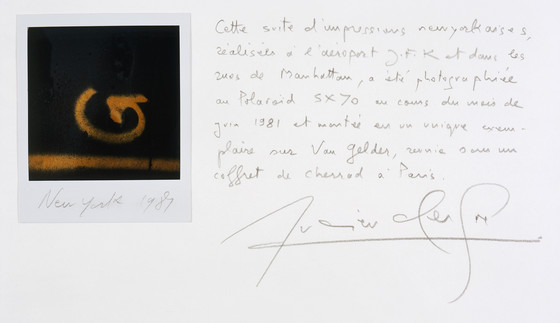 G
New York 1981
Cette suite d'impressions newyorkaises,
réalisées à l'aéroport J.F.K et dans les
rues de Manhattan, a été photographiée
au Polaroid SX70 au cours du mois de
juin 1981 et montée en un unique exem-
plaire sur Van Gelder, réunie sous un
coffret de Cherrad à Paris.